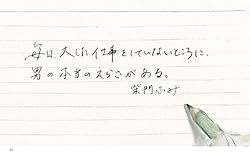 毎日、大した仕事をしていないところに、
男の本当のえらさがある。
柴門ふみ